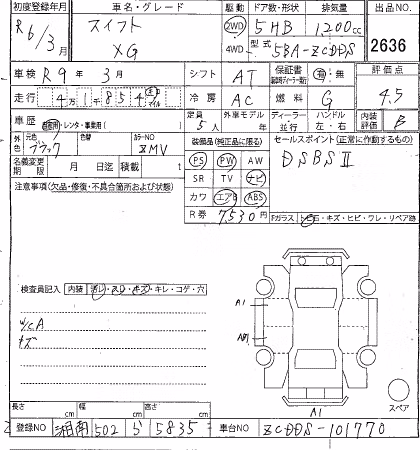 初度登録年月 車名・グレード 駆動 ドア数・形状 排気量 出品NO.
R6/3月 スイフト XG 2WD 5HB 1200cc 2636
4WD 型式 5BA-ZCDDS
車検 R9年 3月 シフト AT 保証書 有・無 評価点
走行 4万1千854 キロ マイル 冷房 AC 燃料 G 4.5
車歴 自家用・レンタ・事業用( ) 定員 5人 外車モデル 年 ディーラー・並行 ハンドル 左・右 内装評価 B
外色 元色 ブラック 色替 カラーNO ZMV 装備品(純正品に限る) セールスポイント(正常に作動するもの)
名義変更期限 月 日迄 積載 t PS PW AW DSBSⅡ
注意事項(欠品・修復・不具合箇所および状態) SR TV ナビ
カワ エアB ABS
R券 7,530円 Fガラス 飛石・キズ・ヒビ・ワレ・リペア跡
検査員記入 内装 ヨレ・スレ・キズ・キレ・コゲ・穴
A1
キズ
A1
長さ cm 幅 cm 高さ cm スペア
登録NO 湘南 502 ら 5835 車台NO ZCDDS-101770